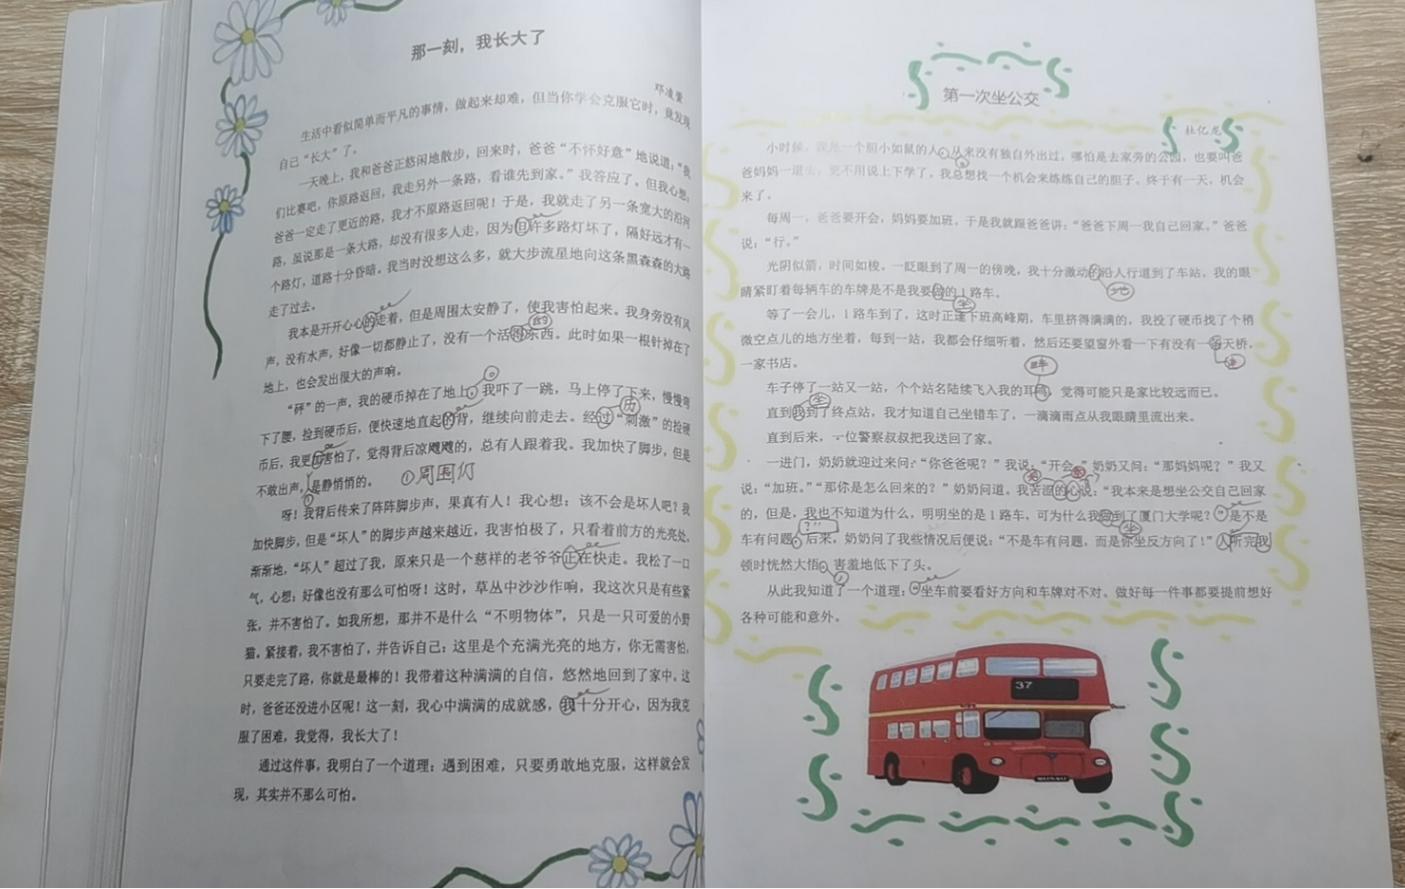 那一刻，我长大了
邓凌萱
生活中看似简单而平凡的事情，做起来却难，但当你学会克服它时，竟发现
自己“长大”了。
一天晚上，我和爸爸正悠闲地散步，回来时，爸爸“不怀好意”地说道，“我
们比赛吧，你原路返回，我走另外一条路，看谁先到家。”我答应了。但我心想，
爸爸一定走了更近的路，我才不原路返回呢！于是，我就走了另一条宽大的沿河
路，虽说那是一条大路，却没有很多人走，因为但许多路灯坏了，隔好远才有一
个路灯，道路十分昏暗。我当时没想这么多，就大步流星地向这条黑森森的大路
走了过去。
我本是开开心心的走着，但是周围太安静了，使我害怕起来。我身旁没有风
声，没有水声，好像一切都静止了，没有一个活得东西。此时如果一根针掉在了
的
地上，也会发出很大的声响。
“砰”的一声，我的硬币掉在了地上，我吓了一跳，马上停了下来，慢慢弯
下了腰，捡到硬币后，便快速地直起的背，继续向前走去。经过“刺激”的捡硬
历
币后，我更加害怕了，觉得背后凉飕飕的，总有人跟着我。我加快了脚步，但是
不敢出声，是静悄悄的。
①周围仍
呀！我背后传来了阵阵脚步声，果真有人！我心想：该不会是坏人吧？我
加快脚步，但是“坏人”的脚步声越来越近，我害怕极了，只看着前方的光亮处，
渐渐地，“坏人”超过了我，原来只是一个慈祥的老爷爷正在快走。我松了一口
气，心想：好像也没有那么可怕呀！这时，草丛中沙沙作响，我这次只是有些紧
张，并不害怕了。如我所想，那并不是什么“不明物体”，只是一只可爱的小野
猫。紧接着，我不害怕了，并告诉自己：这里是个充满光亮的地方，你无需害怕，
只要走完了路，你就是最棒的！我带着这种满满的自信，悠然地回到了家中。这
时，爸爸还没进小区呢！这一刻，我心中满满的成就感，我十分开心，因为我克
服了困难，我觉得，我长大了！
通过这件事，我明白了一个道理：遇到困难，只要勇敢地克服，这样就会发
现，其实并不那么可怕。
第一次坐公交
杜亿龙
小时候，我是一个胆小如鼠的人，从来没有独自外出过，哪怕是去家旁的公园，也要叫爸
爸妈妈一道去，更不用说上下学了。我总想找一个机会来练练自己的胆子。终于有一天，机会
来了。
每周一，爸爸要开会，妈妈要加班，于是我就跟爸爸讲：“爸爸下周一我自己回家。”爸爸
说：“行。”
光阴似箭，时间如梭。一眨眼到了周一的傍晚，我十分激动的沿人行道到了车站，我的眼
地
睛紧盯着每辆车的车牌是不是我要做的1路车。
坐
等了一会儿，1路车到了，这时正逢下班高峰期，车里挤得满满的，我投了硬币找了个稍
微空点儿的地方坐着，每到一站，我都会仔细听着，然后还要望窗外看一下有没有一座天桥，
一家书店。
车子停了一站又一站，个个站名陆续飞入我的耳 觉得可能只是家比较远而已。
坐
直到我到了终点站，我才知道自己坐错车了，一滴滴雨点从我眼睛里流出来。
直到后来，一位警察叔叔把我送回了家。
一进门，奶奶就迎过来问：“你爸爸呢？”我说：“开会。”奶奶又问：“那妈妈呢？”我又
说：“加班。”“那你是怎么回来的？”奶奶问道。我苦涩的心说：“我本来是想坐公交自己回家
的，但是，我也不知道为什么，明明坐的是1路车，可为什么我到了厦门大学呢？是不是
坐
车有问题，后来，奶奶问了我些情况后便说：“不是车有问题，而是你坐反方向了！”听完我
顿时恍然大悟，害羞地低下了头。
从此我知道了一个道理：坐车前要看好方向和车牌对不对。做好每一件事都要提前想好
各种可能和意外。
37